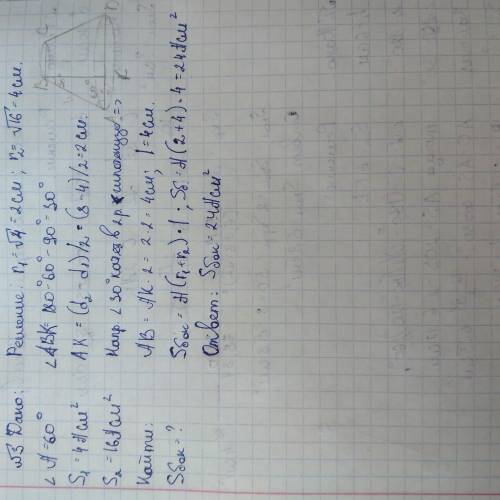 №3 Дано:
∠A=60°
S₁=4πсм²
S₂=16πсм²
Найти:
Sбок=?
Решение: r₁=√4=2см; r₂=√16=4см.
∠ABK=180°-60°-90°=30°
AK=(d₂-d₁)/2=(8-4)/2=2см.
Напр. ∠30° катет в 2р < гипотенузы =>
AB=AK·2=2·2=4см; l=4см.
Sбок=π(r₁+r₂)·l; Sб=π(2+4)·4=24πсм²
Ответ: Sбок=24πсм²
B
C
A
K
D
60°